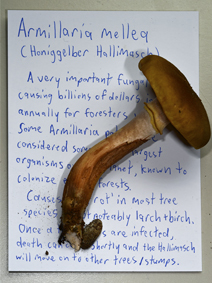 Armillaria mellea
(Honiggelber Hallimasch)
A very important fungus
causing billions of dollars
annually for foresters
Some Armillaria
considered some largest
organisms on planet, known to
colonize forests.
Causes rot' in most tree
species, notably larch + birch.
Once a are infected,
death shortly and the Hallimasch
will move on to other trees/stumps.